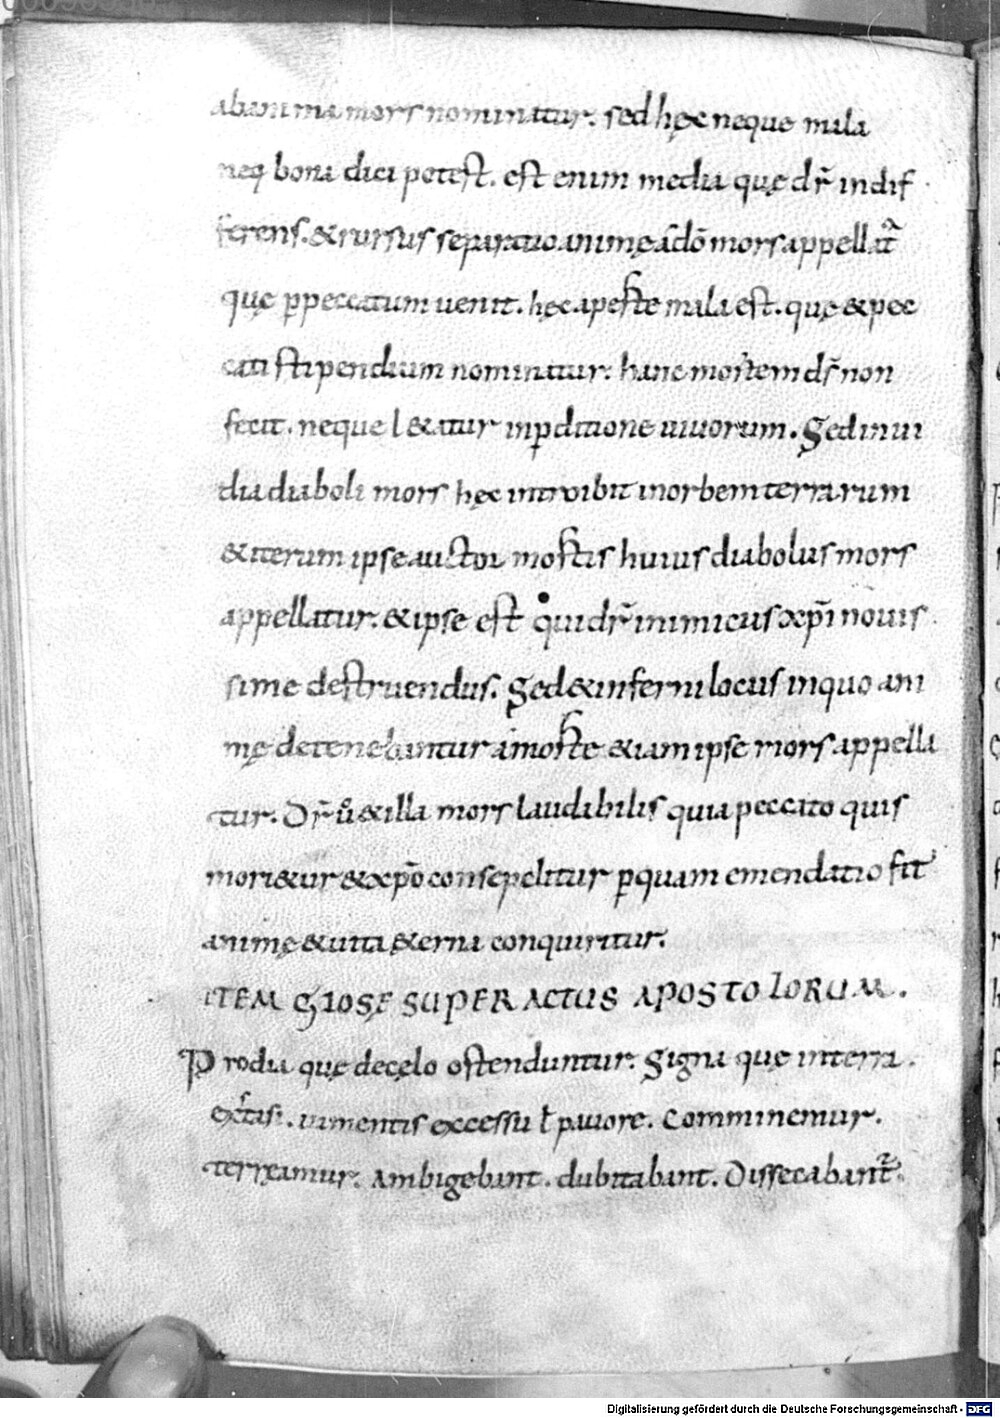 ab anima mors nominatur. sed hęc neque mala
neq; bona dici potest. est enim media quę dr̃ indif
ferens. & rursus separatio animę ado mors appellat᷑
quę p̱ peccatum uenit. hęc ap̱te mala est. quę & pec
cati stipendium nominatur. hanc mortem ds̃ non
fecit. neque l&atur in p̱ditione uiuorum. Sed inui
dia diaboli mors hęc introibit in orbem terrarum
& iterum ipse auctor mortis huius diabolus mors
appellatur. & ipse est qui dr̃ inimicus xp̃i nouis
sime destruendus. Sed & inferni locus in quo ani
mę detenebantur a morte &iam ipse mors appella
tur. Dr̃ ů & illa mors laudabilis quia peccato quis
mori&ur & xp̃o consepelitur p̱ quam emendatio fit
animę & uita &erna conquiritur.
ITEM GLOSĘ SUPER ACTUS APOSTOLORUM.
Prodia quę de cęlo ostenduntur. Signa quę in terra.
in mentis excessu ł pauore. Comminemur.
terreamur. Ambigebant. dubitabant. Dissecabant᷑.
Digitalisierung gefördert durch die Deutsche Forschungsgemeinschaft - DFG